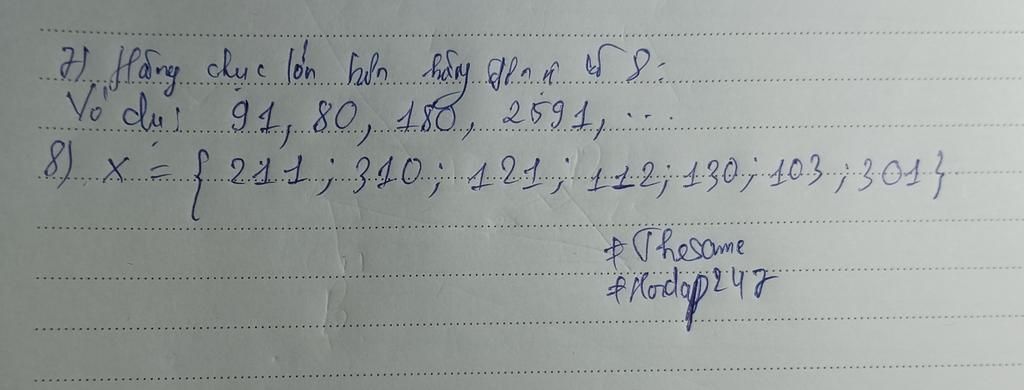 7) Hàng chục lớn hơn hàng đơn vị là 8:
Ví dụ: 91, 80, 180, 2591, ...
8) X = { 211 ; 310 ; 121 ; 112 ; 130 ; 103 ; 301 }
#Thesame
#Hoidap247